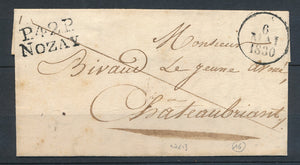 P.42.P.
NOZAY
6
MAI
1830
Monsieur
Bivaud Le jeune
Châteaubriant
16